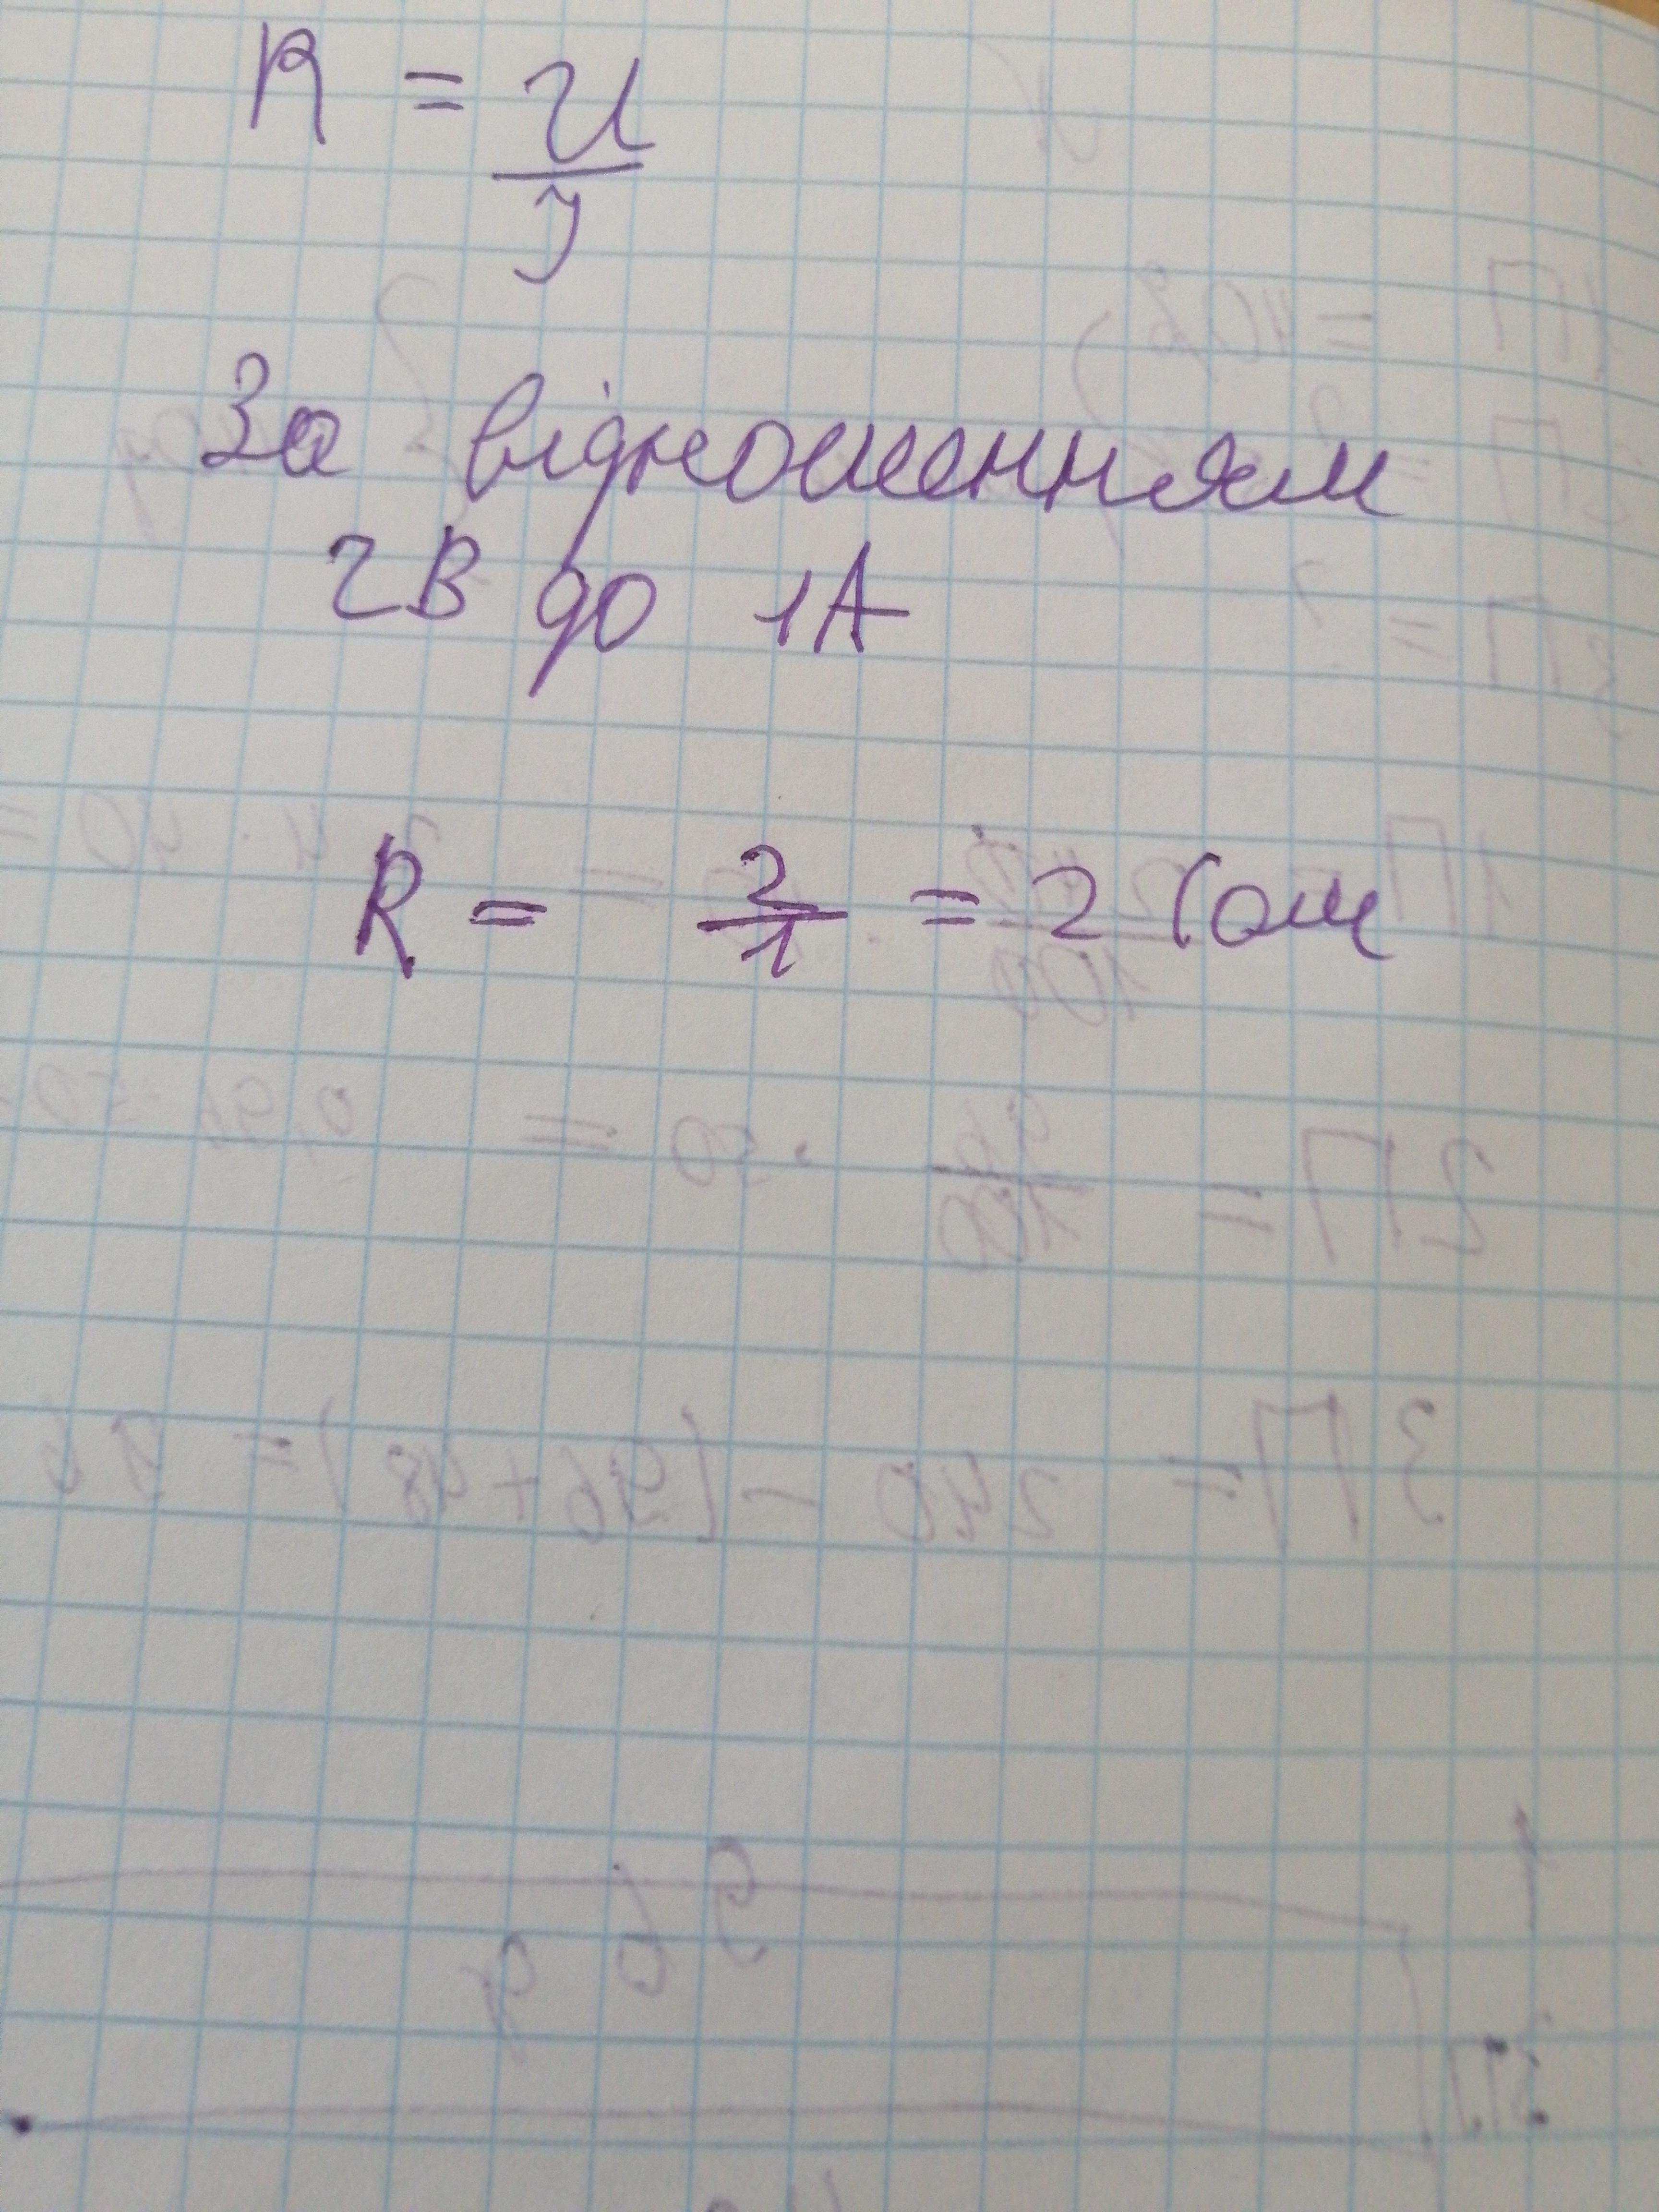 R = U/I
За відношенням
2В до 1А
R = 2/1 = 2 (ом